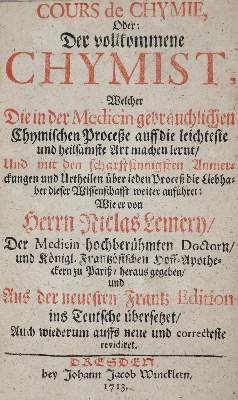 COURS de CHYMIE,
Oder:
Der vollkommene
CHYMIST,
Welcher
Die in der Medicin gebräuchlichen
Chymischen Proceße auf die leichteste
und heilsamste Art machen lernt/
Und mit den scharffsinnigsten Anmer-
ckungen und Urtheilen über ieden Proceß die Liebha-
ber dieser Wissenschafft weiter anführet:
Wie er von
Herrn Niclas Lemery/
Der Medicin hochberühmten Doctorn/
und Königl. Frantzösischen Hoff-Apothe-
ckern zu Pariß/ heraus gegeben/
und
Aus der neuesten Frantz Edition
ins Teutsche übersetzet/
Auch wiederum auffs neue und correcteste
revidiret.
DRESDEN,
bey Johann Jacob Wincklern,
1713.